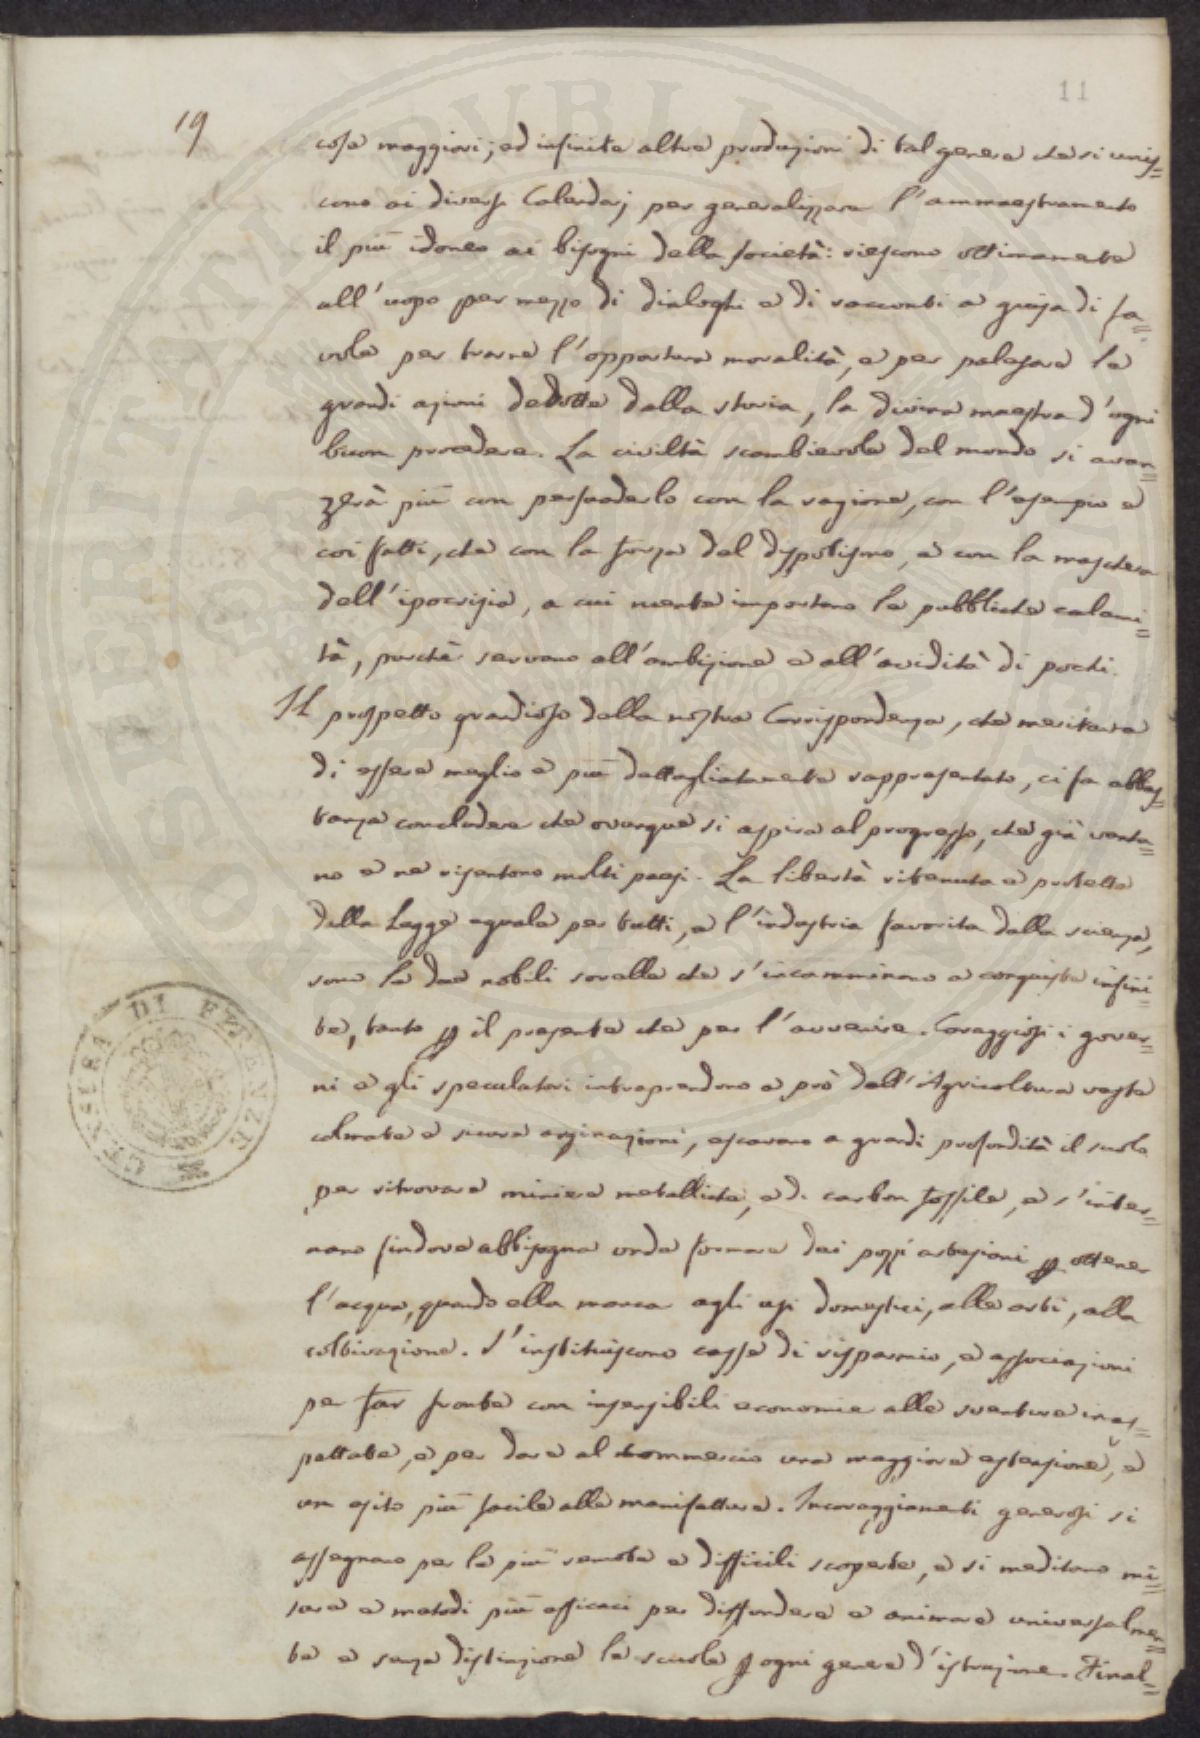 11
19
cose maggiori; ed infinite altre produzioni di tal genere che si unis=
cono ai diversi Calendarj per generalizzare l'ammaestramento
il più idoneo ai bisogni della società: riescono ottimamente
all'uopo per mezzo di dialoghi e di racconti a guisa di fa=
vole per trarne l'opportuna moralità, e per palesare le
grandi azioni dedotte dalla storia, la divina maestra d'ogni
buon procedere. La civiltà scambievole del mondo si avan=
zerà più con persuaderlo con la ragione, con l'esempio e
coi fatti, che con la forza del dispotismo, e con la maschera
dell'ipocrisia, a cui niente importano le pubbliche calami=
tà, purchè servano all'ambizione e all'avidità di pochi.
Il prospetto grandioso della nostra Corrispondenza, che meritava
di essere meglio e più dettagliatamente rappresentato, ci fa abbas=
tanza concludere che ovunque si aspira al progresso, che già vanta=
no e ne risentono molti paesi. La libertà ritenuta e protetta
dalla Legge eguale per tutti, e l'industria favorita dalla scienza,
sono le due nobili sorelle che s'incamminano a conquiste infini=
te, tanto p il presente che per l'avvenire. Coraggiosi i gover=
ni e gli speculatori intraprendono a prò dell'Agricoltura vaste
colmate e sicure arginazioni, escavano a grandi profondità il suolo
per ritrovare miniere metalliche, e di carbon fossile, e s'inter=
nano findove abbisogna onde formare dei pozzi artesiani p ottener
l'acqua, quando ella manca agli usi domestici, alle arti, alla
coltivazione. S'instituiscono casse di risparmio, e associazioni
per far fronte con insensibili economie alle sventure inas=
pettate, e per dare al commercio una maggiore estensione, e
un esito più facile alle manifatture. Incoraggiamenti generosi si
assegnano per le più remote e difficili scoperte, e si meditano mi=
sure e metodi più efficaci per diffondere e animare universalmen=
te e senza distinzione le scuole p ogni genere d'istruzione. Final=
CENSURA DI FIRENZE
SOCIETATIS VERITATI PUBLI